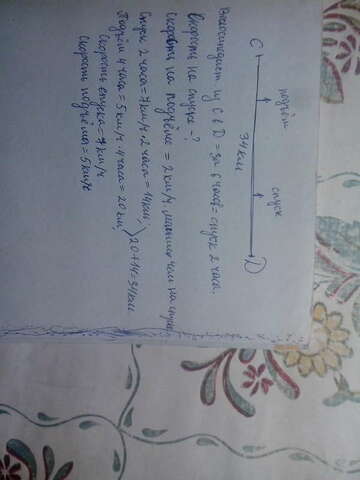 подъём спуск
С 34 км D
Велосипедист из С в D = за 6 часов = спуск 2 часа.
Скорость на спуске - ?
Скорость на подъёме = 2 км/ч. меньше чем на спуске
Спуск 2 часа = 7 км/ч · 2 часа = 14 км.
Подъём 4 часа = 5 км/ч · 4 часа = 20 км. 20 + 14 = 34 км
Скорость спуска = 7 км/ч.
Скорость подъёма = 5 км/ч